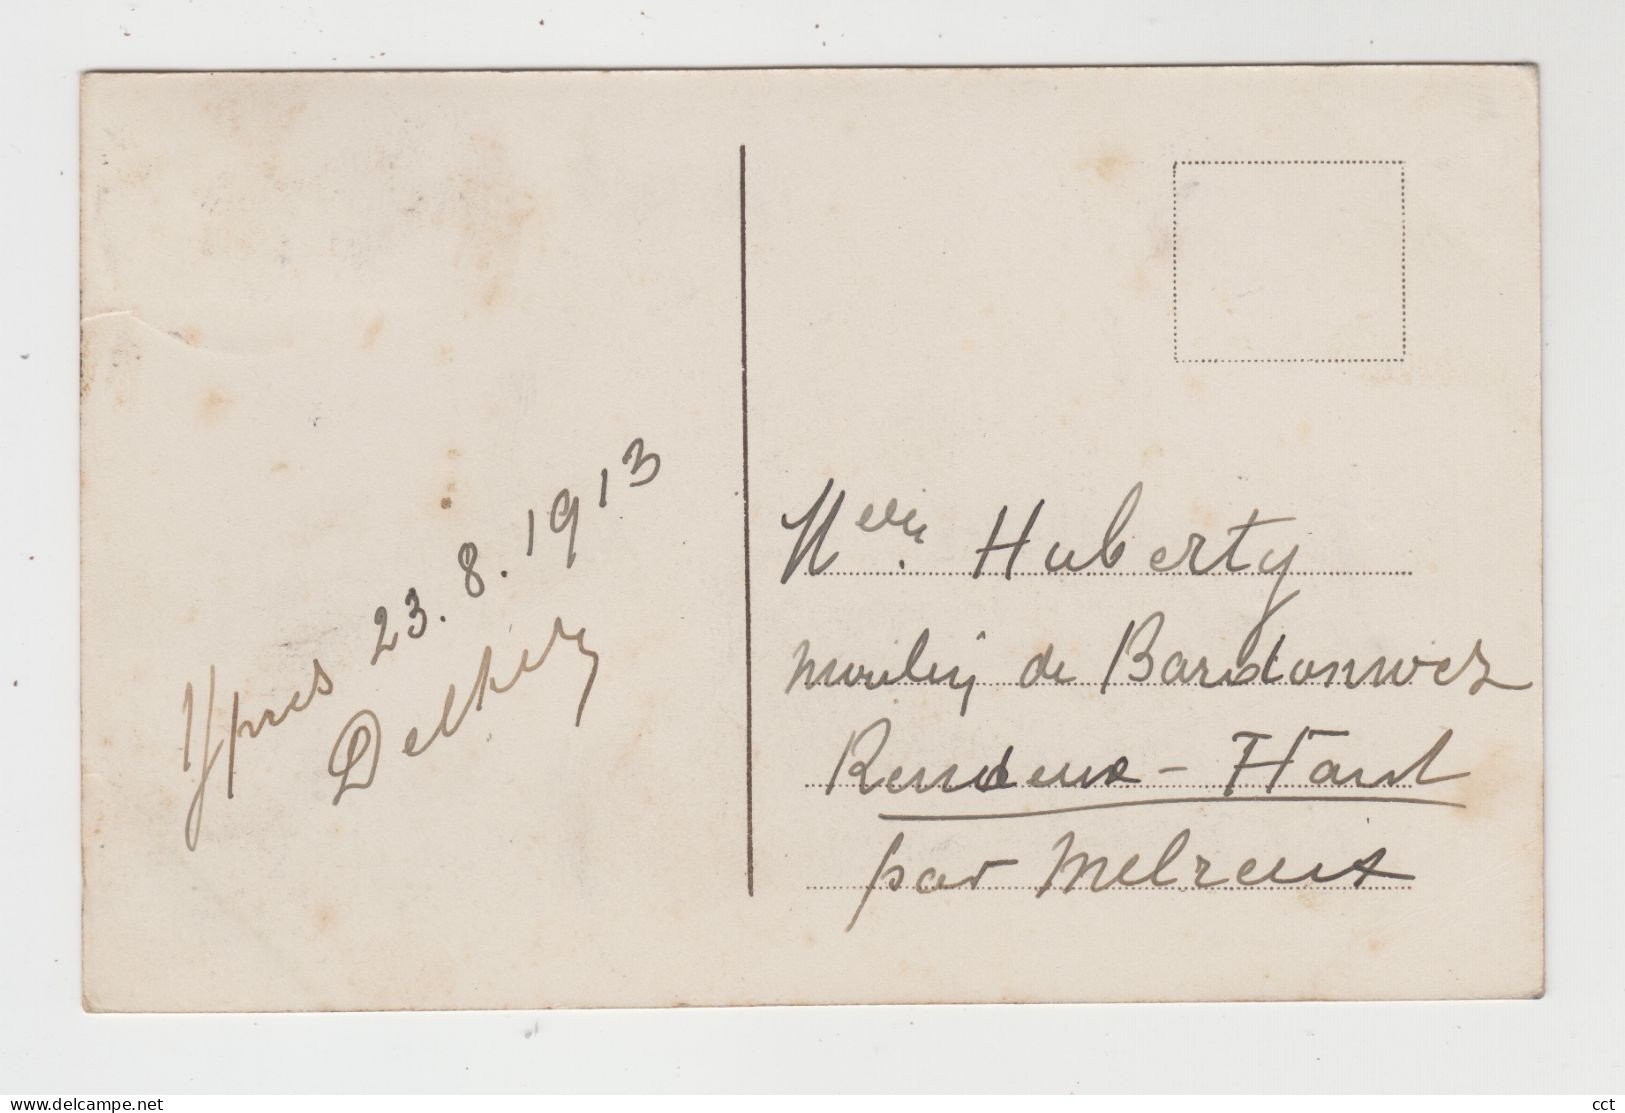 Ypres 23.8.1913
Huberty
moulin de Bardonwez
Rendeux-Haut
par Melreux
www.delcampe.net
cct